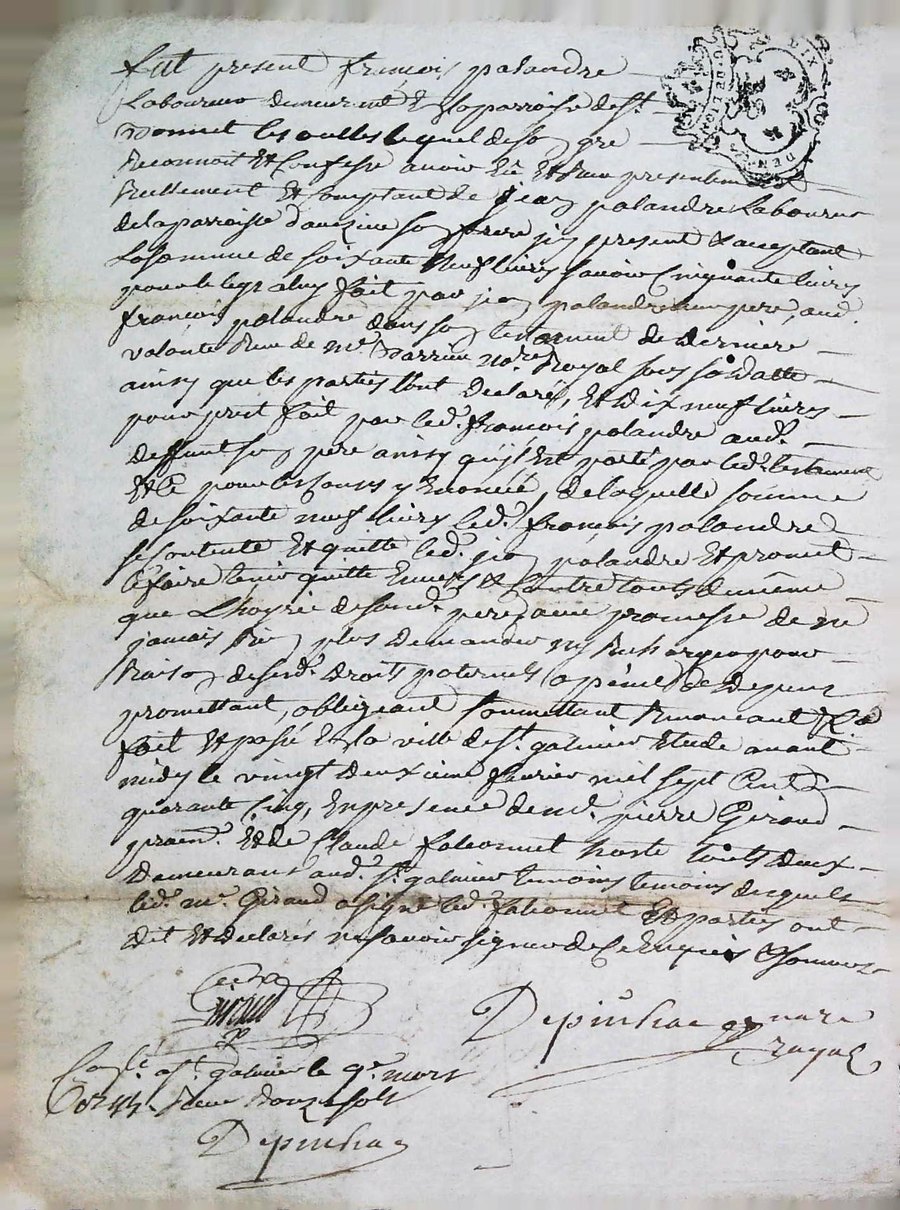 fut present françois palandre
Laboureur demeurant En la parroisse de St.
Bonnet les oulles lequel de son gre
Reconnoit Et Confesse avoir Eü Et Reçu presentemt
Reellement Et Comptant de jean palandre Laboureur
de la parroisse d'aveizine son frere jcy present & acceptant
La somme de soixante Neuf livres savoir Cinquante livres
pour le legt a luy fait par jean palandre leur pere, aud.
françois palandre dans son testament de derniere
volonté Reçu de me. Darrieu nore. Royal sous sa datte
ainsy que les parties l'ont Declaré, Et Dix neuf livres
pour prest fait par led. françois palandre aud.
deffunt son pere ainsy quil Est porté par led. testament
Et Ce pour les Causes y Enoncée, de laquelle somme
de soixante neuf livres led. françois palandre
se Contente Et quitte led. jean palandre Et promet
le faire tenir quitte Envers & Contre touts de même
que L'hoyrie de sond. pere avec promesse de ne
jamais Rien plus Demander ny Rechercher pour
Raison de sesd. Droits paternels a peine de Depens
promettant, obligeant soumettant Renonceant &a
fait Et passé En la ville de St. galmier Etude avant
midy le vingt deuxieme fevrier mil sept Cents
quarante Cinq, En presence de me. pierre Giraud
pratn. Et de Claude falconnet hoste touts deux
Demeurant aud. St. galmier temoins temoins desquels
led. me. Giraud a signé led. falconnet Et parties ont
Dit Et Declarés ne savoir signer de Ce Enquis & sommés
Giraud
Depinhac nore
royal
Conlé. a St. galmier le 9e. mars
1745. Reçu Douze sols
Depinhac